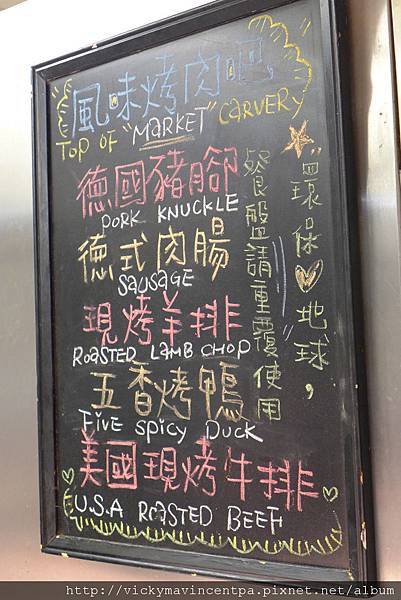 風味烤肉吧
TOP OF "MARKET" CARVERY
德國豬腳
PORK KNUCKLE
德式肉腸
SAUSAGE
現烤羊排
ROASTED LAMB CHOP
五香烤鴨
FIVE SPICY DUCK
美國現烤牛排
U.S.A ROASTED BEEF
環保♡地球，
餐盤請重覆使用
http://vickymavincentpa.pixnet.net/album